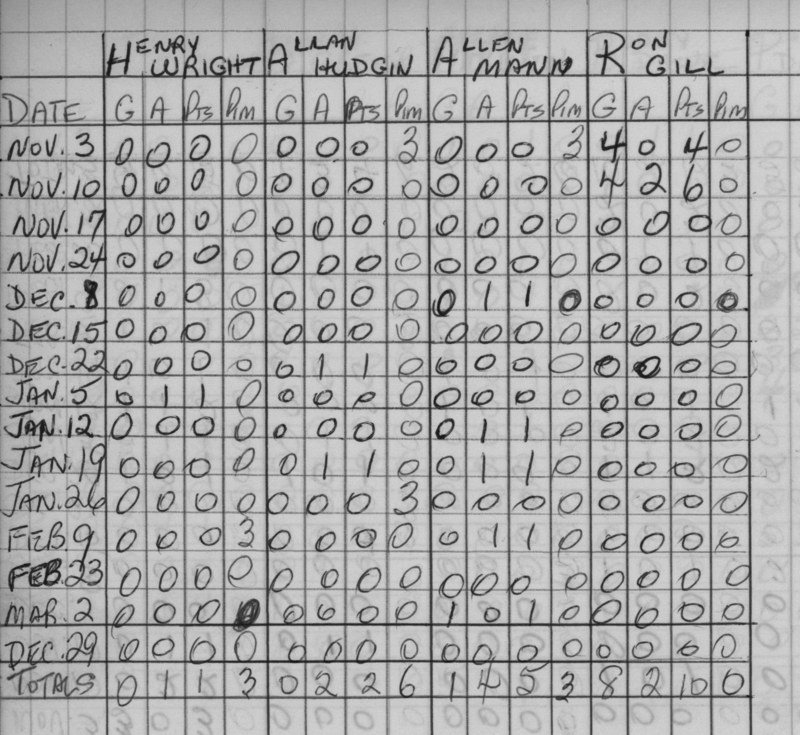 HENRY WRIGHT ALLAN HUDGIN ALLEN MANN RON GILL
DATE G A Pts Pim G A Pts Pim G A Pts Pim G A Pts Pim
NOV. 3 0 0 0 0 0 0 0 3 0 0 0 3 4 0 4 0
NOV. 10 0 0 0 0 0 0 0 0 0 0 0 0 4 2 6 0
NOV. 17 0 0 0 0 0 0 0 0 0 0 0 0 0 0 0 0
NOV. 24 0 0 0 0 0 0 0 0 0 0 0 0 0 0 0 0
DEC. 8 0 0 0 0 0 0 0 0 0 1 1 0 0 0 0 0
DEC. 15 0 0 0 0 0 0 0 0 0 0 0 0 0 0 0 0
DEC. 22 0 0 0 0 0 1 1 0 0 0 0 0 0 0 0 0
JAN. 5 0 1 1 0 0 0 0 0 0 0 0 0 0 0 0 0
JAN. 12 0 0 0 0 0 0 0 0 0 1 1 0 0 0 0 0
JAN. 19 0 0 0 0 0 1 1 0 0 1 1 0 0 0 0 0
JAN. 26 0 0 0 0 0 0 0 3 0 0 0 0 0 0 0 0
FEB. 9 0 0 0 3 0 0 0 0 0 1 1 0 0 0 0 0
FEB. 23 0 0 0 0 0 0 0 0 0 0 0 0 0 0 0 0
MAR. 2 0 0 0 0 0 0 0 0 1 0 1 0 0 0 0 0
DEC. 29 0 0 0 0 0 0 0 0 0 0 0 0 0 0 0 0
TOTALS 0 1 1 3 0 2 2 6 1 4 5 3 8 2 10 0